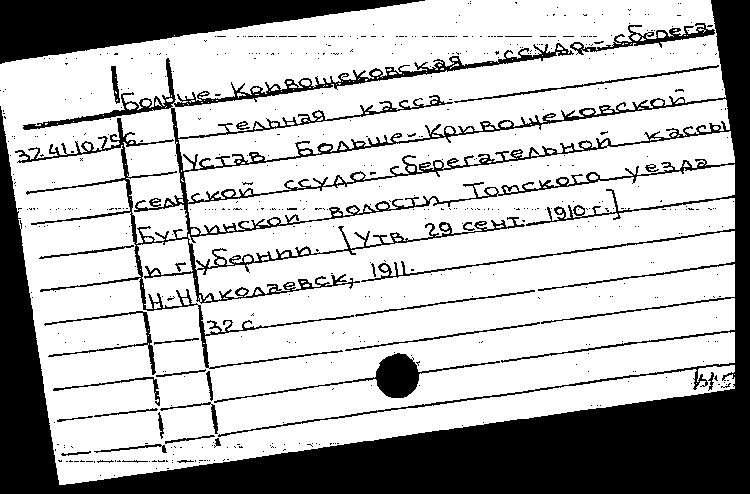 Больше-Кривощековская ссудо-сберега-
тельная касса.
37.41.10.796.
Устав Больше-Кривощековской
сельской ссудо-сберегательной кассы
Бугринской волости, Томского уезда
и губернии. [Утв. 29 сент. 1910 г.]
Н-Николаевск, 1911.
32 с.